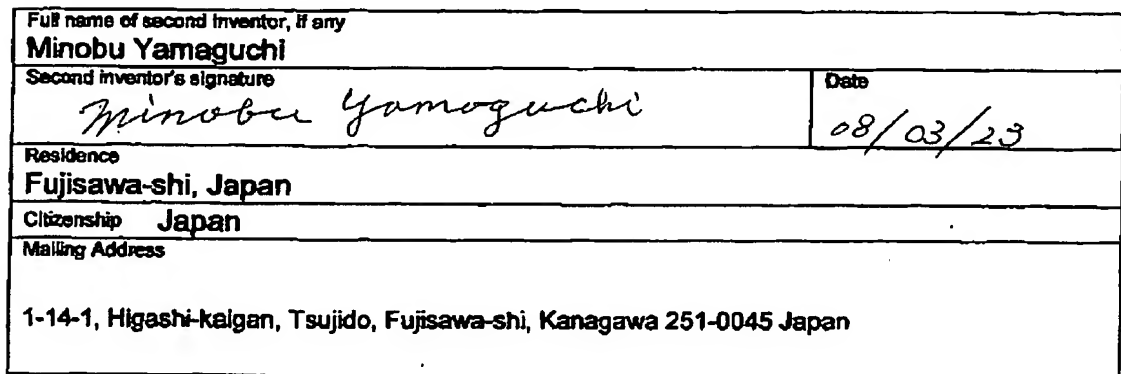 Full name of second inventor, if any
Minobu Yamaguchi
Second inventor's signature
Date
Minobu Yamaguchi
08/03/23
Residence
Fujisawa-shi, Japan
Citizenship Japan
Mailing Address
1-14-1, Higashi-kaigan, Tsujido, Fujisawa-shi, Kanagawa 251-0045 Japan